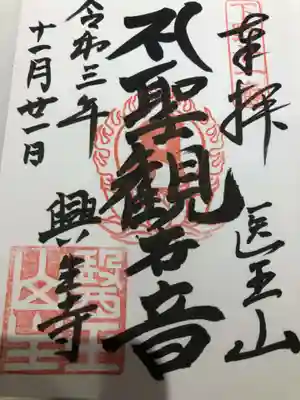 奉拝
医王山
聖観世音
興生寺
令和三年
十一月廿一日